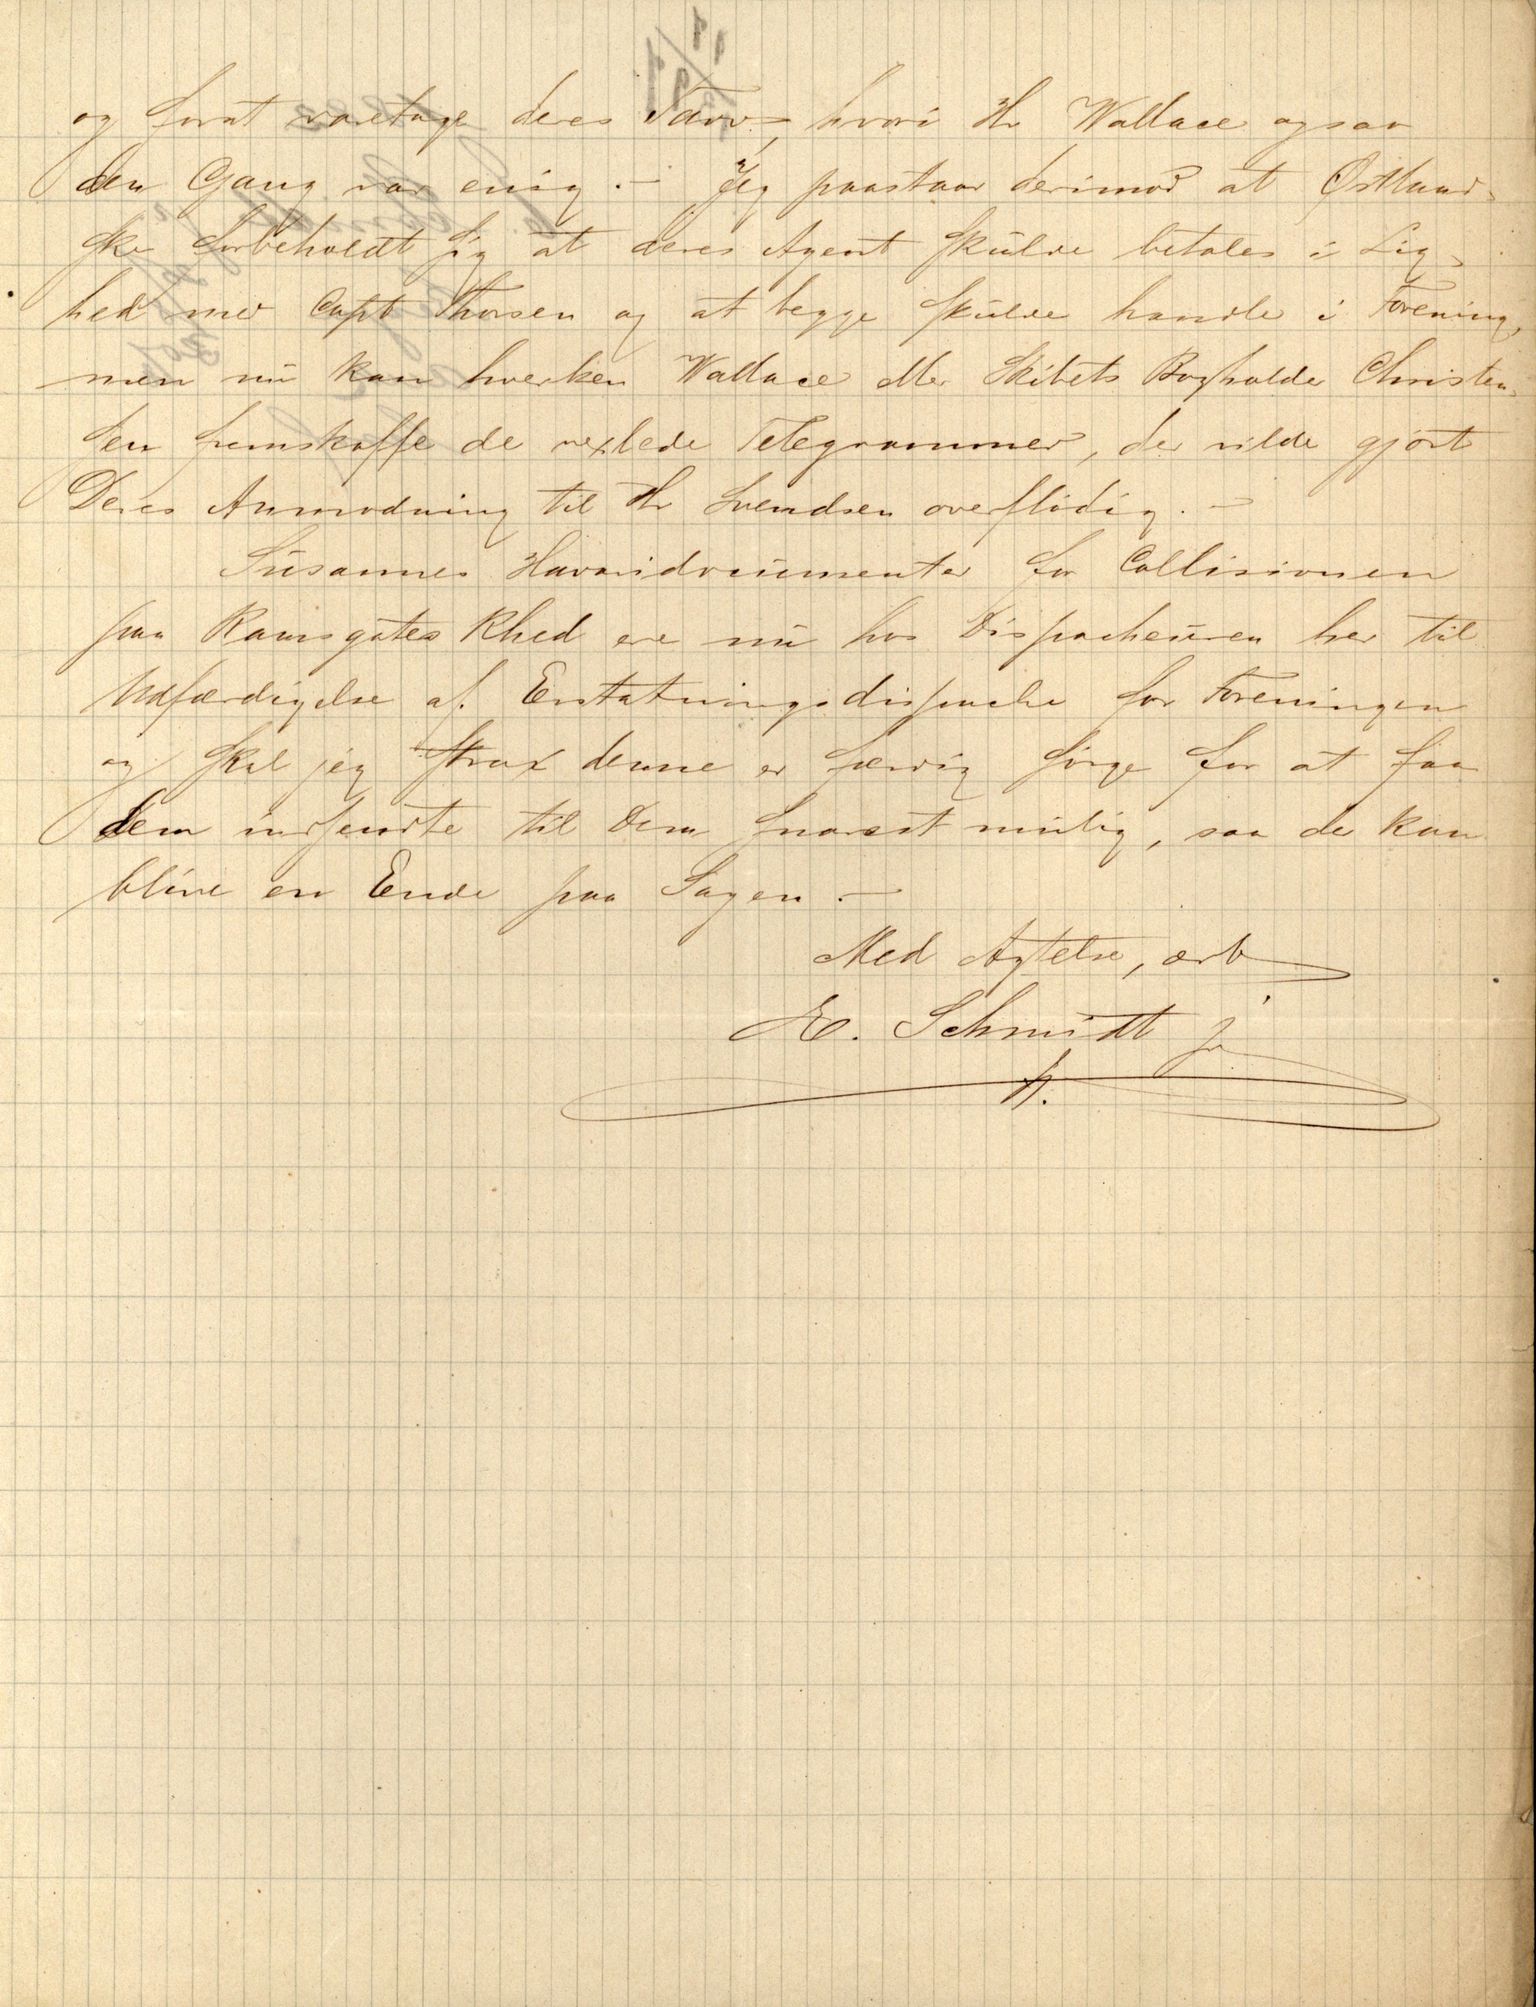 og forat varetage deres Tarv, hvori Hr Wallace ogsaa
den Gang var enig. – Jeg paastaar derimod at Østland-
ske forbeholdt sig at deres Agent skulde betales i Lig-
hed med Capt Thorsen og at begge skulde handle i Forening,
men nu kan hverken Wallace eller Skibets Bogholder Christen-
sen fremskaffe de vexlede Telegrammer, der vilde gjort
Deres Anmodning til Hr Svendsen overflödig. –
Susannes Havaridocumenter for Collisionen
paa Ramsgates Rhed ere nu hos Dispacheuren her til
Udfærdigelse af Erstatningsdispache for Foreningen
og skal jeg strax denne er færdig sörge for at faa
dem indsendte til Dem snarest mulig, saa der kan
blive en Ende paa Sagen. –
Med Agtelse, ærb
E. Schmidt jr